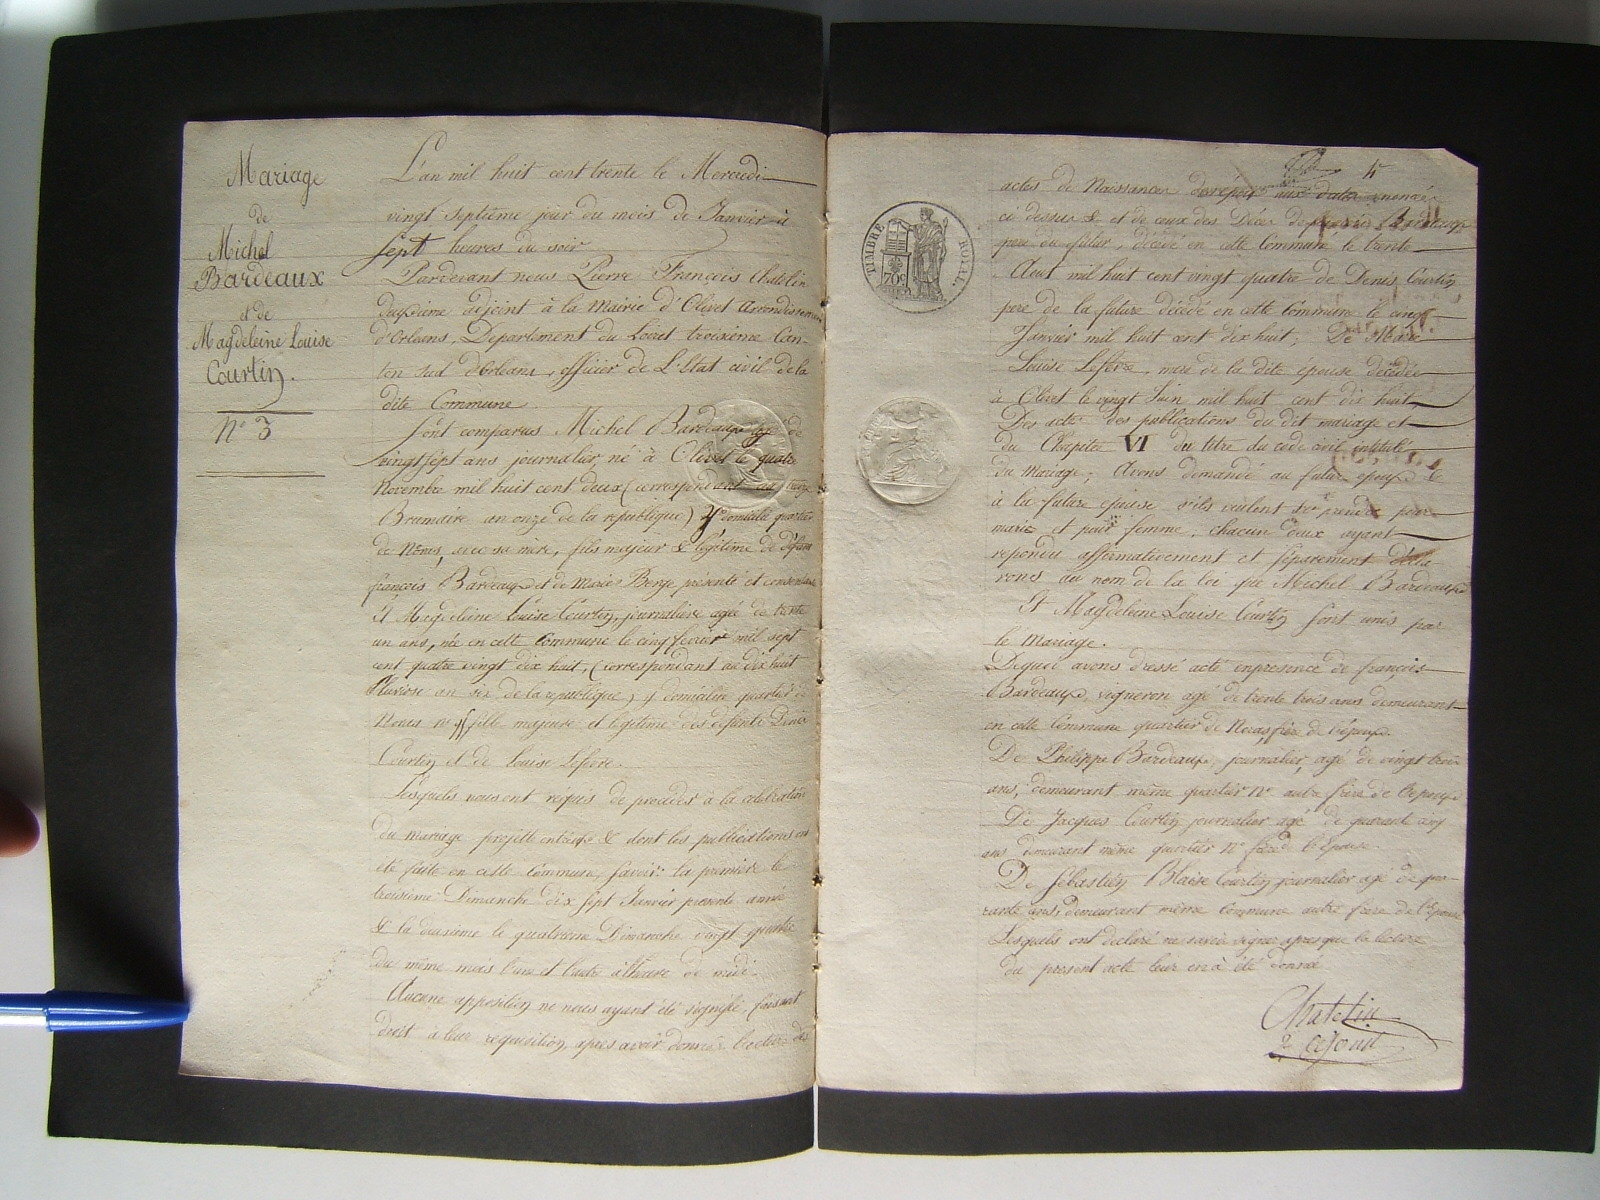 Mariage
de
Michel
Bardeaux
et de
Magdeleine Louise
Courtin.
N° 3
L'an mil huit cent trente le Mercredi
vingt septieme jour du mois de Janvier à
sept heures du soir
Pardevant nous Pierre François Chatelin
deuxieme adjoint à la Mairie d'Olivet Arrondissement
d'Orleans, Département du Loiret troisieme Can-
ton sud d'Orleans, officier de L'Etat civil de la
dite Commune
Sont comparus Michel Bardeaux agé de
vingt sept ans journalier, né à Olivet le quatre
Novembre mil huit cent deux (correspondant au treize
Brumaire an onze de la republique) y domicilié quartier
de Noras, avec sa mere, fils majeur & legitime de défunt
françois Bardeaux et de Marie Berge présente et consentante
Et Magdeleine Louise Courtin, journaliere agée de trente
un ans, née en cette Commune le cinq fevrier mil sept
cent quatre vingt dix huit, (correspondant au dix huit
Pluviose an six de la republique) y domiciliée quartier de
Noras n° fille majeure et legitime des defunts Denis
Courtin et de Louise Lefevre.
Lesquels nous ont requis de proceder à la célébration
du mariage projetté entr'eux & dont les publications ont
été faite en cette Commune, savoir: la premiere le
troisieme Dimanche dix sept Janvier presente année
& la deuxieme le quatrieme Dimanche vingt quatre
du même mois l'une et l'autre à l'heure de midi.
Aucune opposition ne nous ayant été signifié, faisant
droit à leur requisition, après avoir donné lecture des
4
actes de Naissances aux dates enoncé
ci dessus & et de ceux des Décés de françois Bardeaux
pere du futur, décédé en cette Commune le trente
Aout mil huit cent vingt quatre de Denis Courtin
pere de la future décédé en cette Commune le cinq
Janvier mil huit cent dix huit; De Marie
Louise Lefevre, mere de la dite épouse décédée
à Olivet le vingt Juin mil huit cent dix huit,
Des acte des publications du dit mariage et
du Chapitre VI du titre du code civil intitulé
du Mariage; Avons demandé au futur époux &
à la future epouse s'ils veulent se prendre pour
marie et pour femme, chacun d'eux ayant
repondu affirmativement et séparement décla
rons au nom de la loi que Michel Bardeaux
Et Magdeleine Louise Courtin sont unis par
le Mariage.
Dequoi avons dressé acte en presence de françois
Bardeaux, vigneron agé de trente trois ans demeurant
en cette Commune quartier de Noras frere de l'époux.
De Philippe Bardeaux, journalier, agé de vingt trois
ans, demeurant même quartier N° autre frere de l'époux
De Jacques Courtin journalier agé de quarant six
ans demeurant même quartier N° frere de l'épouse
De Sébastien Blaise Courtin journalier agé de qua-
rante ans, demeurant même commune autre frere de l'épouse
Lesquels ont declaré ne savoir signer apres que la lecture
du present acte leur en à été donnée
Chatelin
2e adjoint
TIMBRE ROYAL.
70c